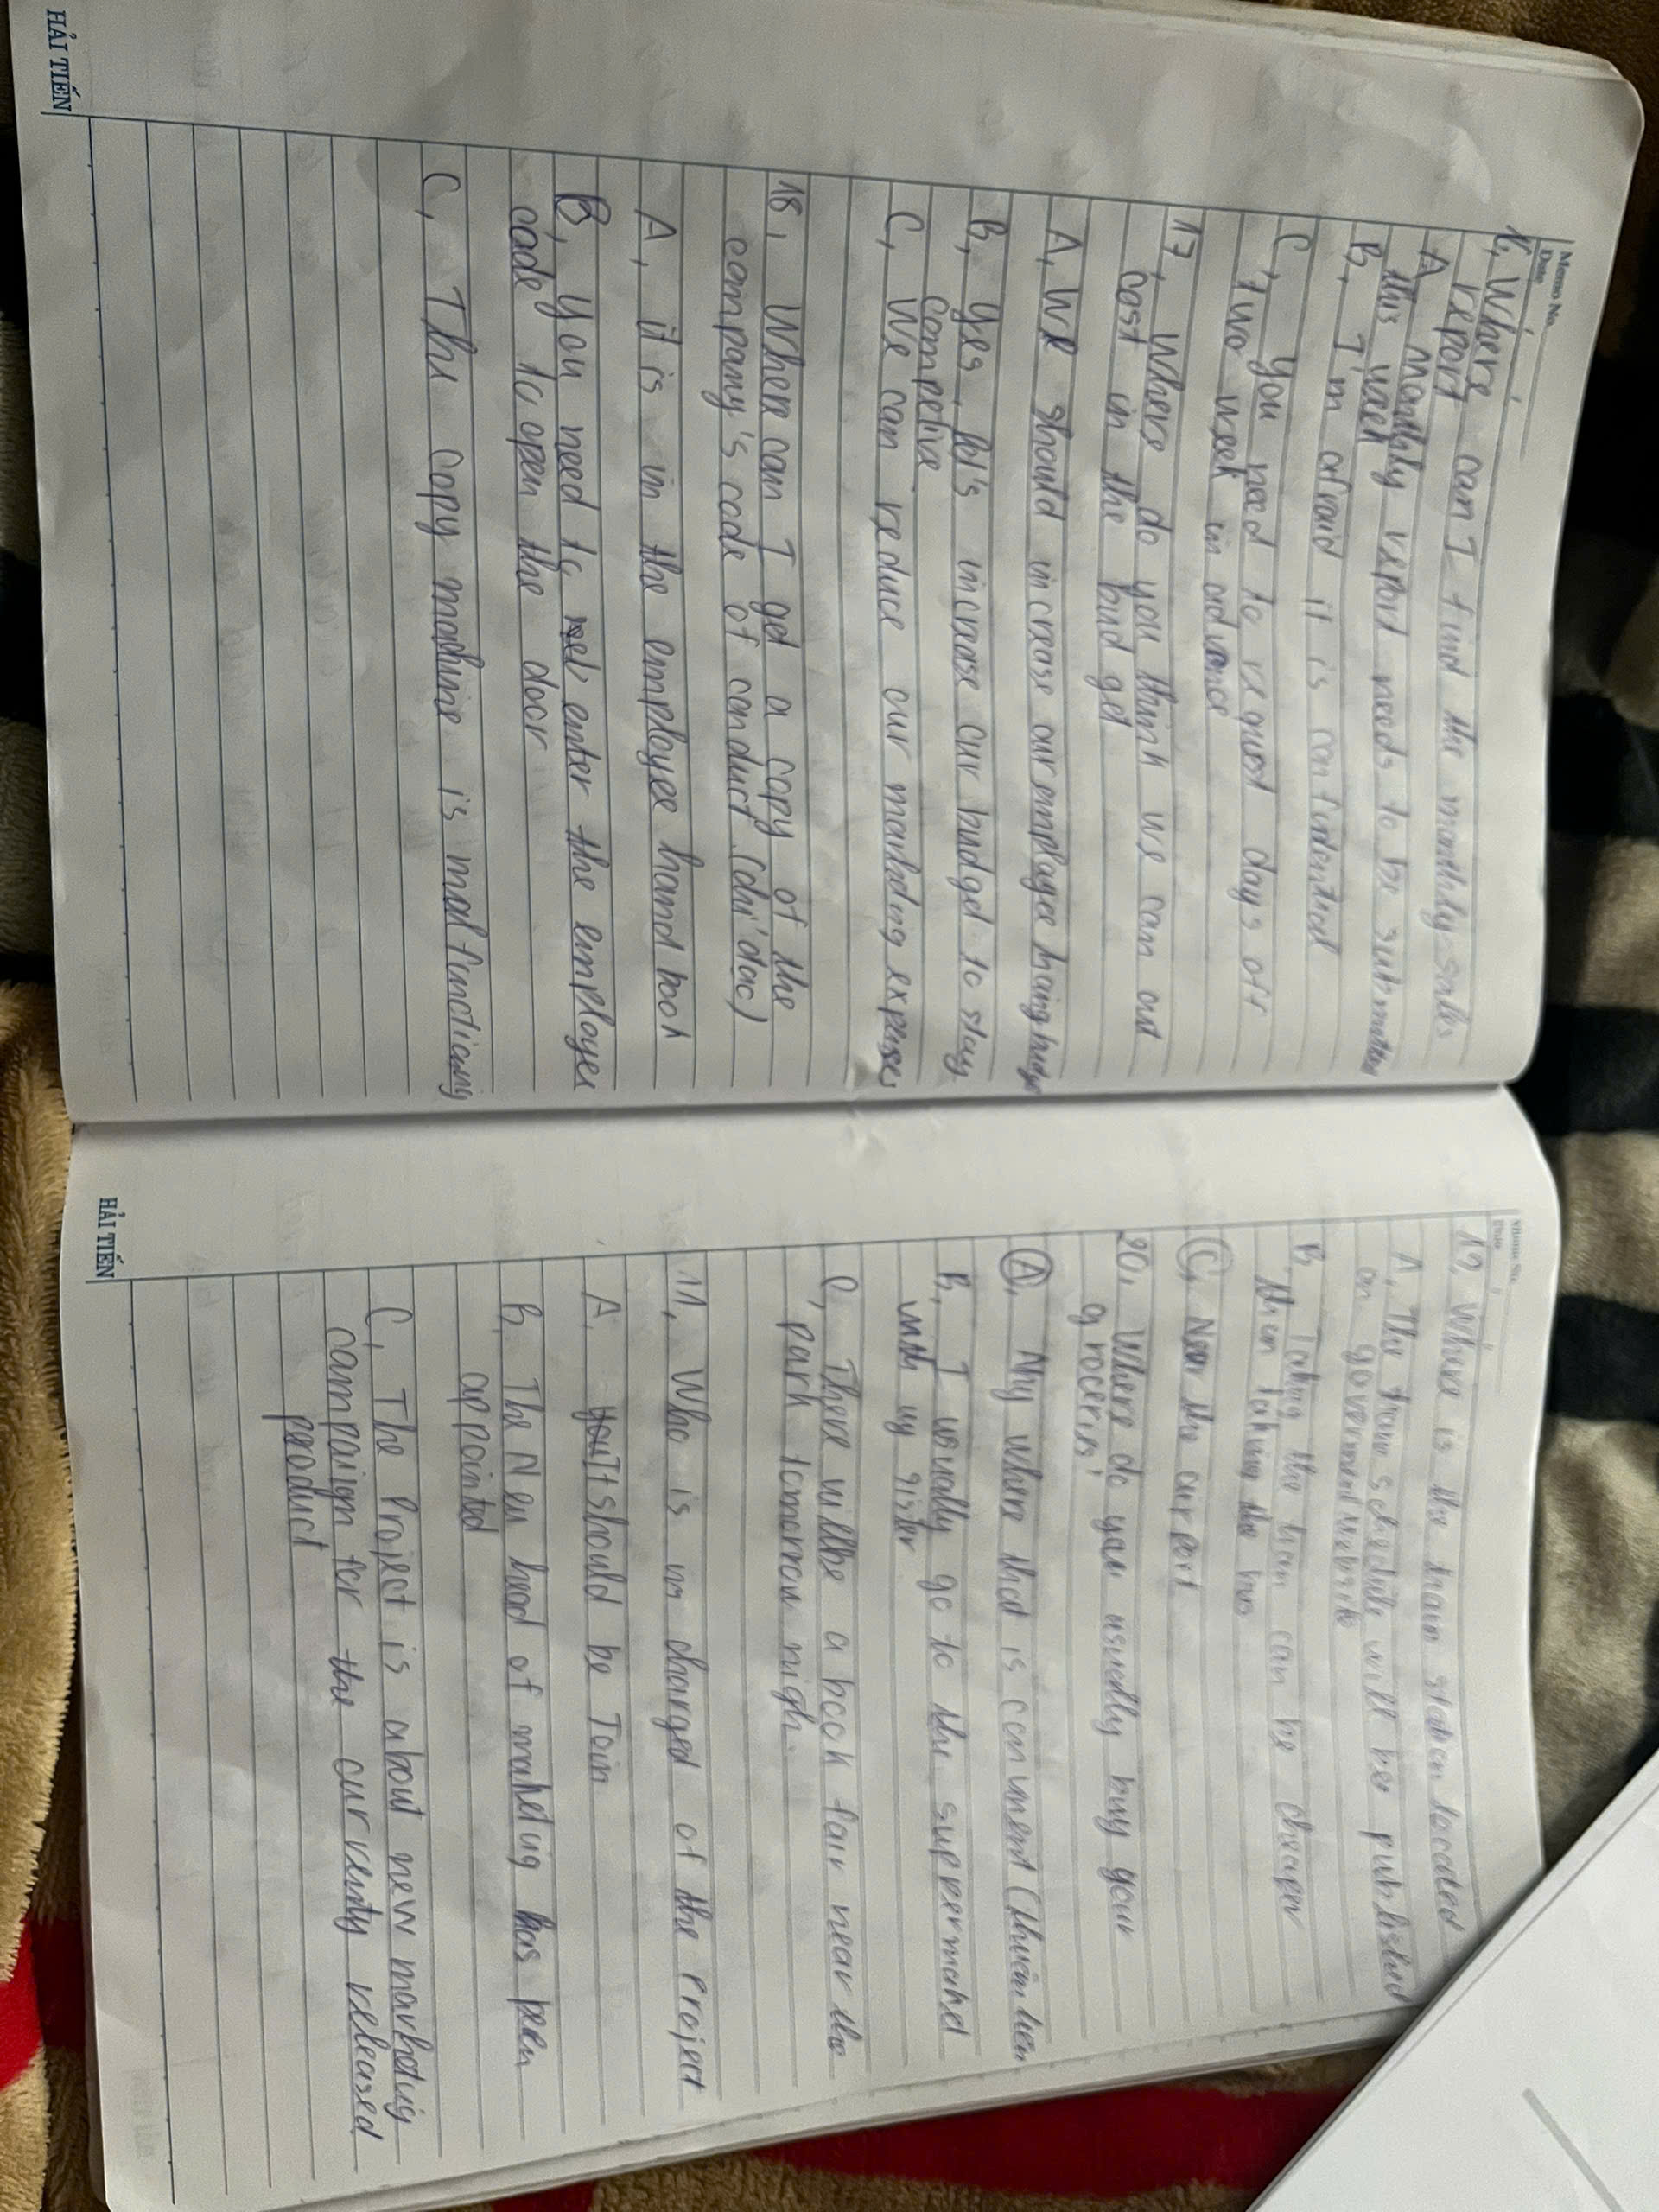 Memo No.
Date
16, Where can I find the monthly sales
report
A, monthly report needs to be submitted
this week
B, I'm afraid it is confidential
C, you need to request days off
two week in advance
17, Where do you think we can cut
cost in the bud get
A, We should increase our employee hiring
B, Yes, let's increase our budget to stay
competive
C, We can reduce our marketing expenses
18, Where can I get a copy of the
company's code of conduct (chỉ đạo)
A, it is in the employee hand book
B, You need to enter the employee
code to open the door
C, The copy machine is malfunctioning
HẢI TIẾN
Memo No.
Date
19, Where is the train station located
A, The train schedule will be published
on government website
B, Taking the train can be cheaper
then taking the bus
C, Near the airport
20, Where do you usually buy your
groceries
A, My where that is convinent (thuận tiện
B, I usually go to the supermarket
with my sister
C, There will be a book fair near the
park tomorrow nigh.
11, Who is in charged of the project
A, It should be Join
B, The New head of marketing has been
appointed
C, The Project is about new marketing
campaign for the currenty released
product
HẢI TIẾN